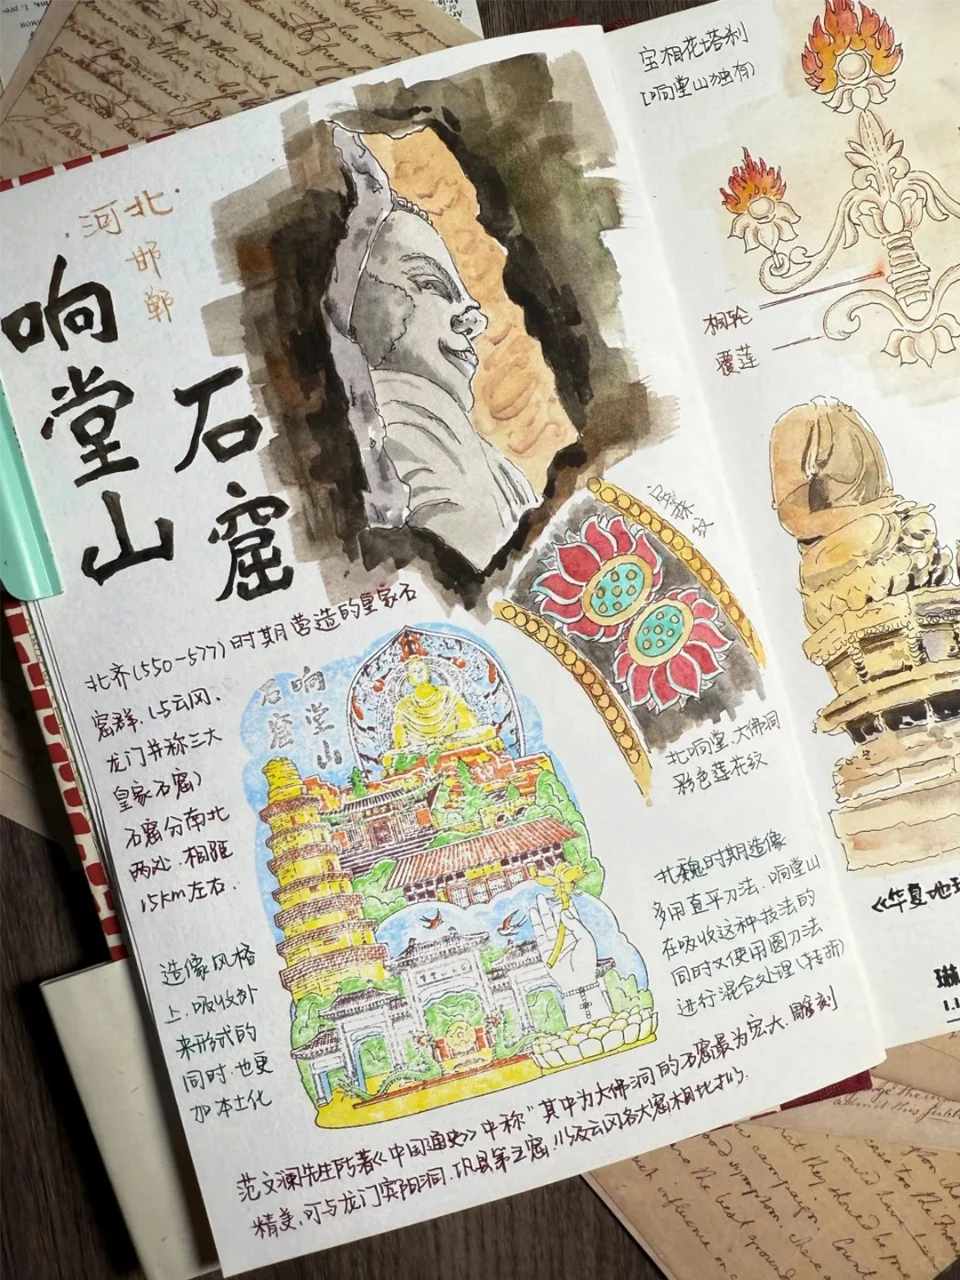 ·河北·
邯郸
响堂山
石窟
北齐(550-577)时期营造的皇家石
窟群.(与云冈.
龙门并称三大
皇家石窟)
石窟分南北
两处.相距
15km左右.
造像风格
上.吸收外
来形式的
同时.也更
加本土化
响堂山
石窟
连珠纹
北响堂.大佛洞
彩色莲花纹
北魏时期造像
多用直平刀法.响堂山
在吸收这种技法的
同时又使用圆刀法
进行混合处理(转折)
范文澜先生所著《中国通史》中称"其中为大佛洞的石窟最为宏大.雕刻
精美.可与龙门宾阳洞.巩县第三窟.以及云冈各大窟相比拟.
宝相花塔刹
(响堂山独有)
相轮
覆莲
《华夏地理